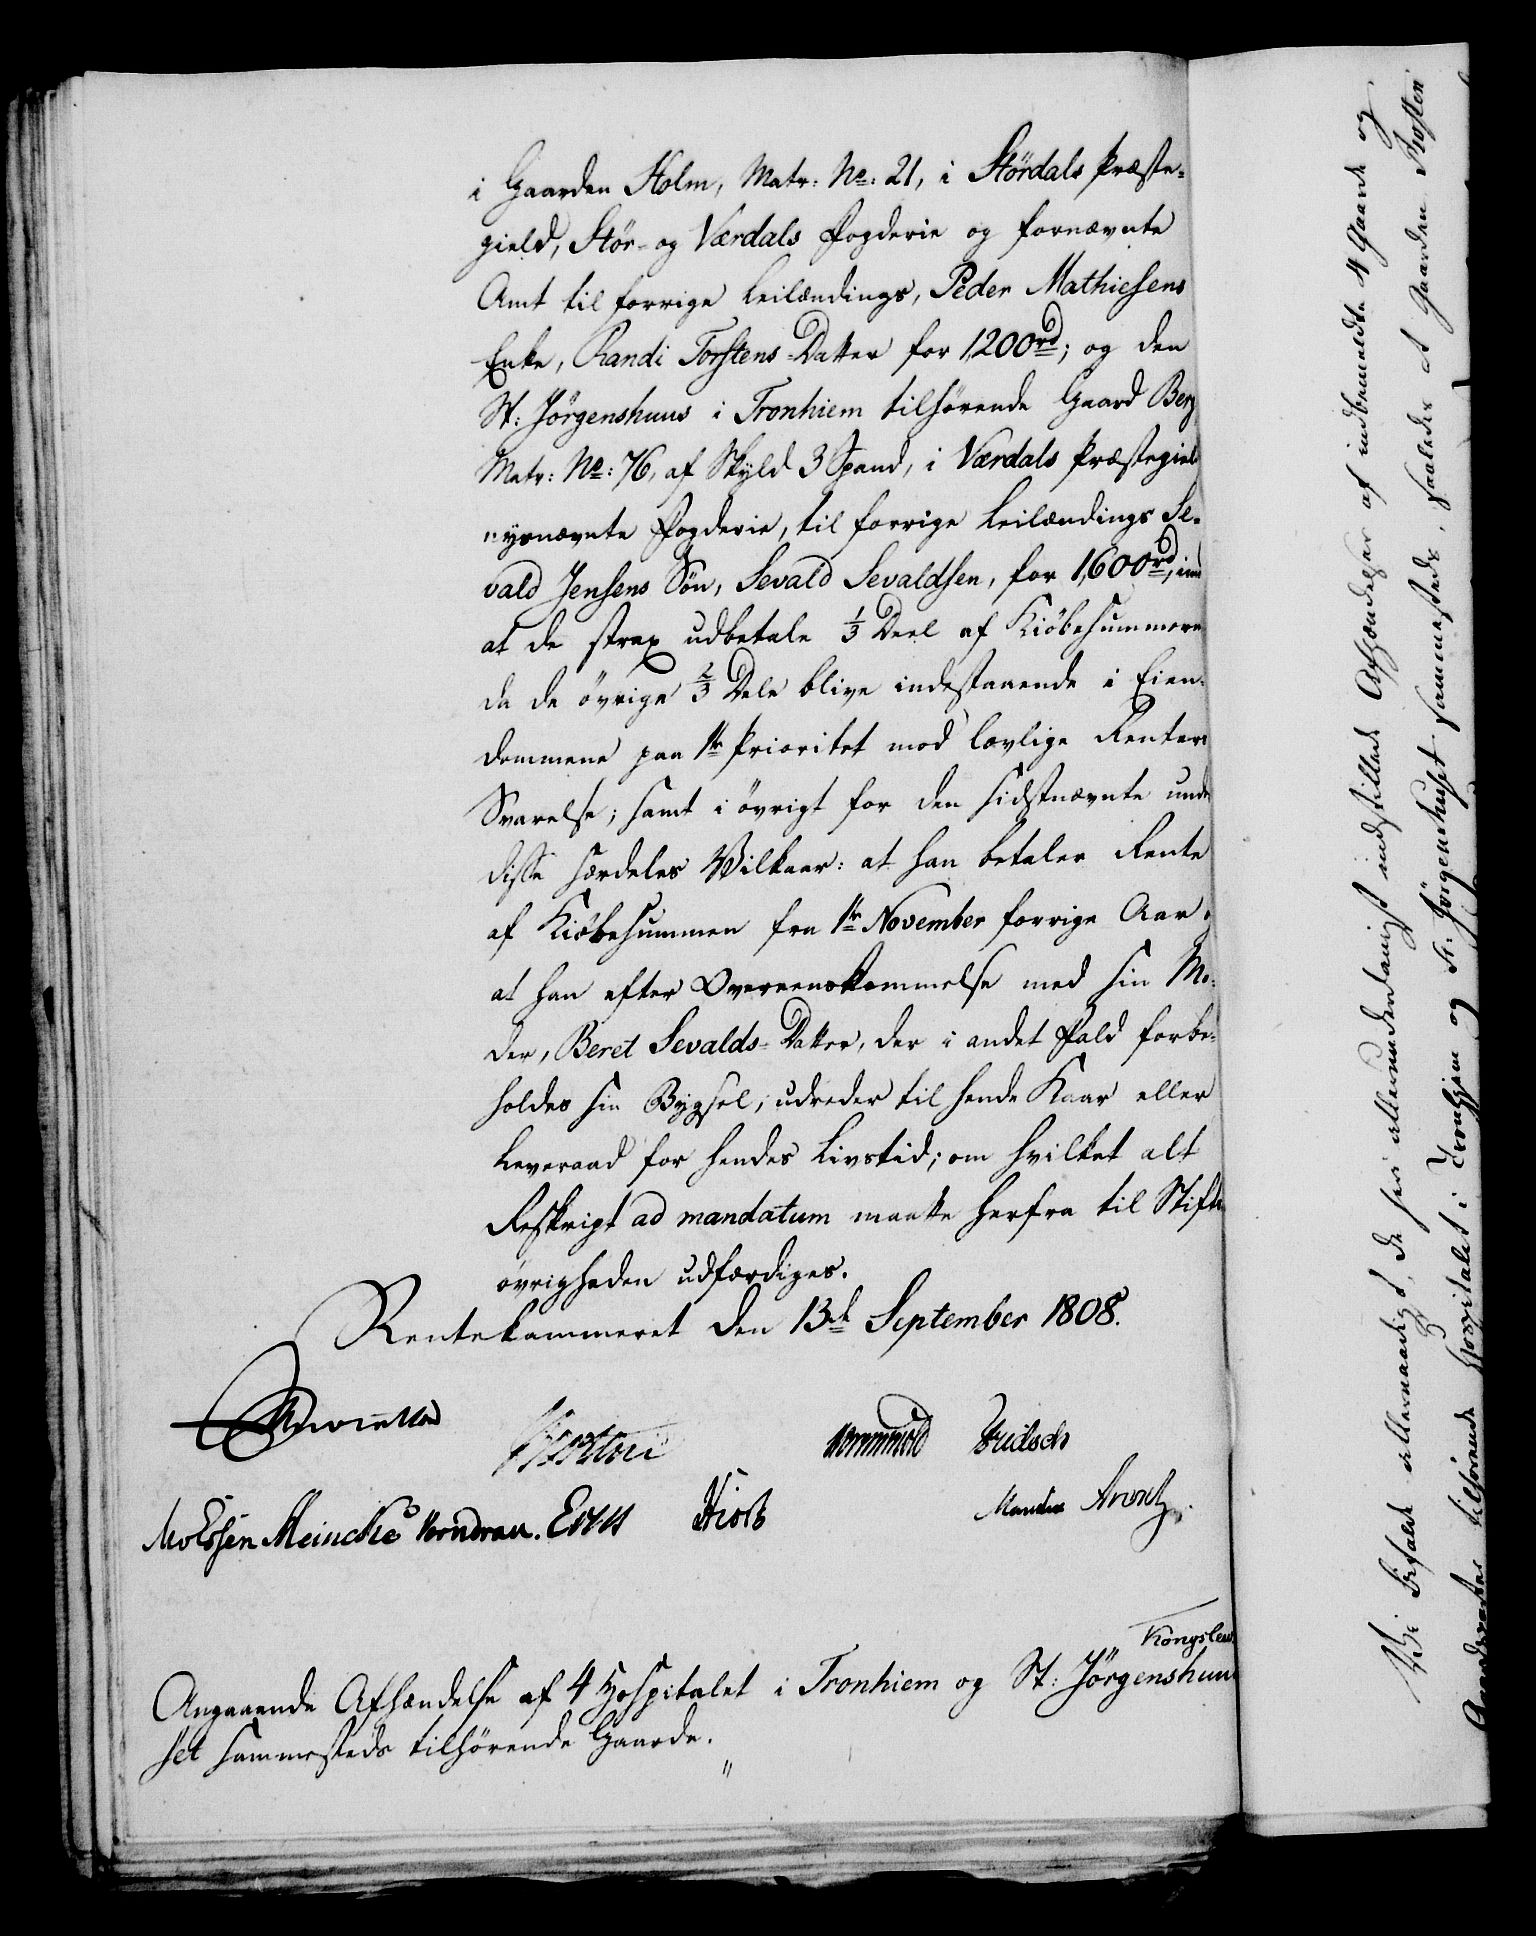 i Gaarden Holm, Matr: No: 21, i Stördals Præste-
gield, Stör- og Værdals Fogderie og fornævnte
Amt til forrige Leilændings, Peder Mathiesens
Enke, Randi Torstens-Datter for 1200rd; og den
St: Jörgenshuus i Tronhiem tilhörende Gaard Berg
Matr: No: 76, af Skyld 3 Spand, i Værdals Præstegield
nysnævnte Fogderie, til forrige Leilændings Se-
vald Jensens Sön, Sevald Sevaldsen, for 1,600rd,
at de strax udbetale 1/3 Deel af Kiöbesummerne
da de övrige 2/3 Dele blive indestaaende i Eien-
dommene paa 1te Prioritet mod lovlige Renters
Svarelse; samt i övrigt for den sidstnævnte under
disse særdeles Vilkaar: at han betaler Rente
af Kiöbesummen fra 1te November forrige Aar,
at han efter Overeenskommelse med sin Mo-
der, Beret Sevalds-Datter, der i andet Fald forbe-
holdes sin Bygsel, udreder til hende Kaar eller
Leveraad for hendes Livstid; om hvilket alt
Reskript ad mandatum maatte herfra til Stifts
övrigheden udfærdiges.
Rentekammeret den 13de September 1808.
Wormskiold
Meincke Vorndran. Hiort
Arentz.
Kongslew
Angaaende Afhændelse af 4 Hospitalet i Tronhiem og St: Jörgenshuu-
set sammesteds tilhörende Gaarde.
Vi bifalde allernaadigst, de her allerunderdanigst indstillede Afhændelser af indbemeldte 4 Gaarde og
tilhörende Hospitalet i Tronhiem og St: Jörgenshuset sammesteds, saaledes at Gaarden Rosten